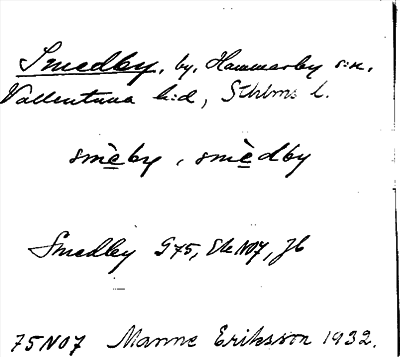 Smedby, by, Hammarby s:n,
Vallentuna h:d, Sthlms l.
smèby, smèdby
Smedby G75, Ek N07, Jb
75N07 Manne Eriksson 1932.